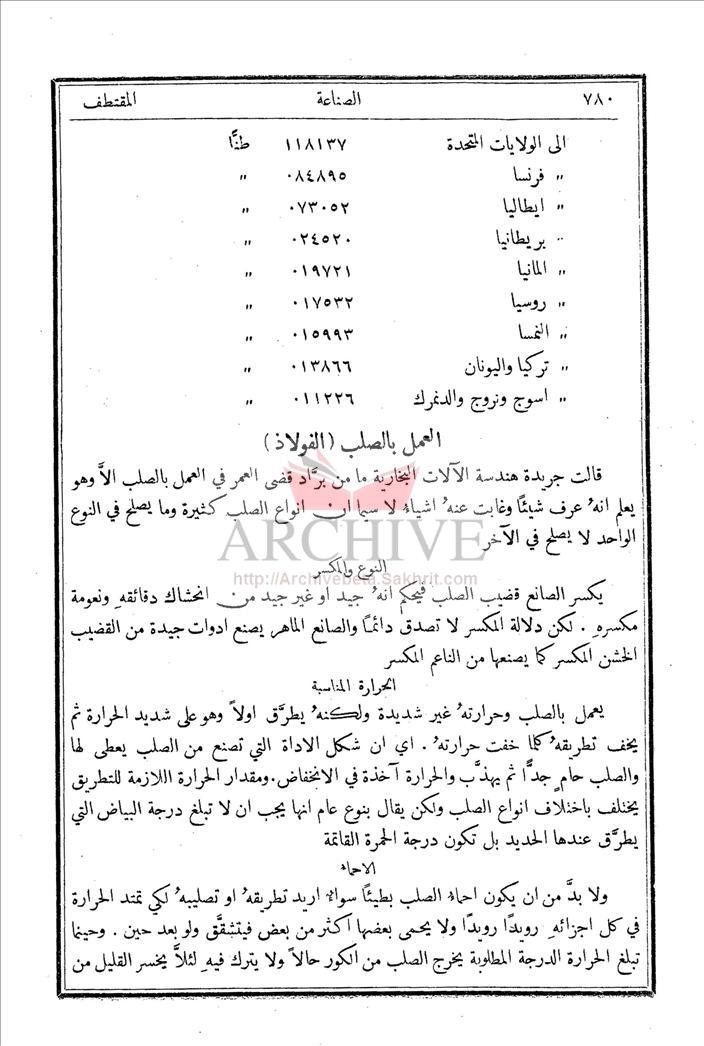 ٧٨٠ الصناعة المقتطف
الى الولايات المتحدة ١١٨١٣٧ طنًّا
" فرنسا ٠٨٤٨٩٥ "
" ايطاليا ٠٧٣٠٥٢ "
" بريطانيا ٠٢٤٥٢٠ "
" المانيا ٠١٩٧٢١ "
" روسيا ٠١٧٥٣٢ "
" النمسا ٠١٥٩٩٣ "
" تركيا واليونان ٠١٣٨٦٦ "
" اسوج ونروج والدنمرك ٠١١٢٢٦ "
العمل بالصلب (الفولاذ)
قالت جريدة هندسة الآلات البخارية ما من برَّاد قضى العمر في العمل بالصلب الاَّ وهو
يعلم انهُ عرف شيئًا وغابت عنهُ اشياءُ لا سيما ان انواع الصلب كثيرة وما يصلح في النوع
الواحد لا يصلح في الآخر
ARCHIVE
النوع والمكسر
http://Archivebeta.Sakhrit.com
يكسر الصانع قضيب الصلب فيحكم انهُ جيد او غير جيد من انحشاك دقائقهِ ونعومة
مكسرهِ . لكن دلالة المكسر لا تصدق دائمًا والصانع الماهر يصنع ادوات جيدة من القضيب
الخشن المكسر كما يصنعها من الناعم المكسر
الحرارة المناسبة
يعمل بالصلب وحرارتهُ غير شديدة ولكنهُ يطرَّق اولاً وهو على شديد الحرارة ثم
يخف تطريقهُ كما خفت حرارتهُ . اي ان شكل الاداة التي تصنع من الصلب يعطى لها
والصلب حامٍ جدًّا ثم يهذَّب والحرارة آخذة في الانخفاض.ومقدار الحرارة اللازمة للتطريق
يختلف باختلاف انواع الصلب ولكن يقال بنوع عام انها يجب ان لا تبلغ درجة البياض التي
يطرَّق عندها الحديد بل تكون درجة الحمرة القاتمة
الاحماء
ولا بدَّ من ان يكون احماء الصلب بطيئًا سواء اريد تطريقهُ او تصليبهُ لكي تمتد الحرارة
في كل اجزائهِ رويدًا رويدًا ولا يحمى بعضها اكثر من بعض فيتشقَّق ولو بعد حين . وحينما
تبلغ الحرارة الدرجة المطلوبة يخرج الصلب من الكور حالاً ولا يترك فيهِ لئلاَّ يخسر القليل من